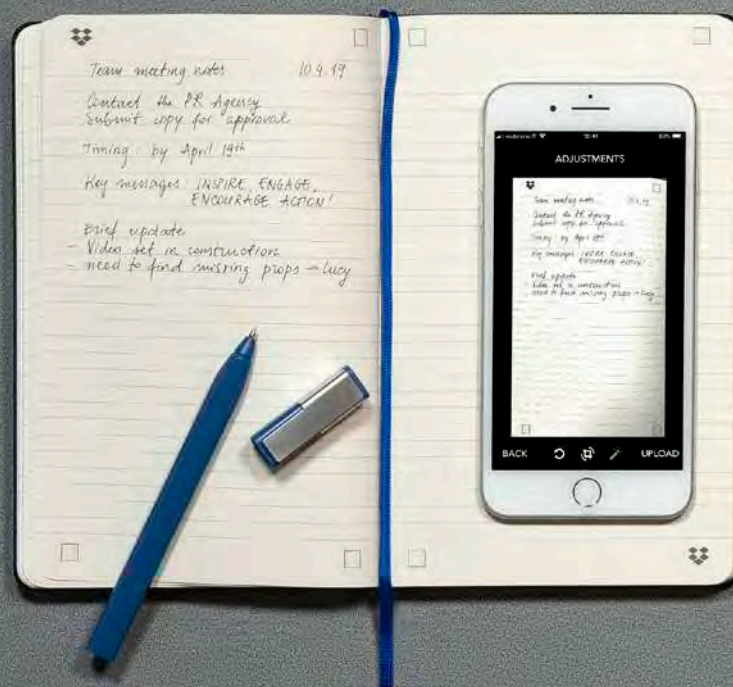 Team meeting notes 10.4.19
Contact the PR Agency
Submit copy for approval
Timing: by April 19th
Key messages: INSPIRE, ENGAGE,
ENCOURAGE ACTION!
Brief update
- Video set in construction
- need to find missing props → Lucy
ADJUSTMENTS
Team meeting notes 10.4.19
Contact the PR Agency
Submit copy for approval
Timing: by April 19th
Key messages: INSPIRE, ENGAGE,
ENCOURAGE ACTION!
Brief update
- Video set in construction
- need to find missing props → Lucy
BACK
UPLOAD